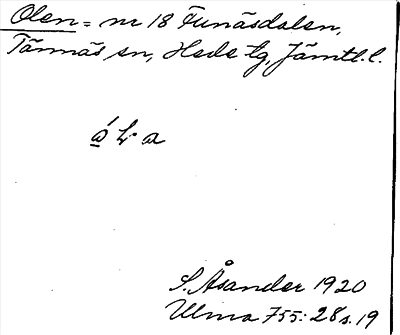 Olen = nr 18 Funäsdalen,
Tännäs sn, Hede tg, Jämtl. l.
S. Åsander 1920
Ulma 755: 28 s. 19